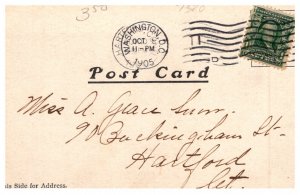 350
WASHINGTON, D.C.
OCT
11-PM
1905
Post Card
Miss A. Grace
90 Buckingham St-
Hartford
Ct.
is Side for Address.